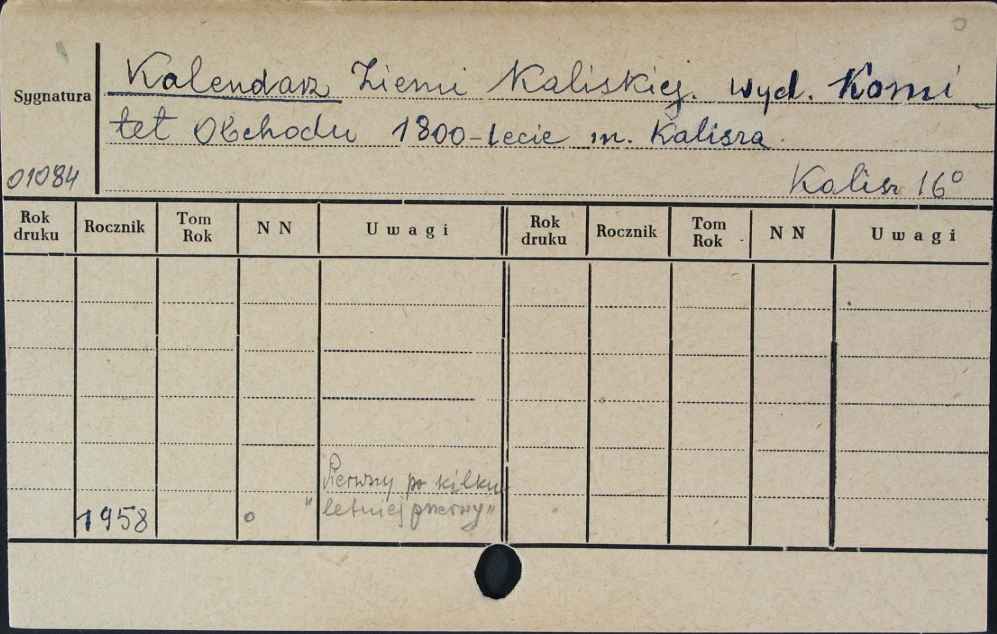 Kalendarz Ziemi Kaliskiej. wyd. Komi-
Sygnatura
tet Obchodu 1800-lecie m. Kalisza
01084
Kalisz 16°
Rok druku Rocznik Tom Rok N N Uwagi Rok druku Rocznik Tom Rok N N Uwagi
Pierwszy po kilku
1958 o "letniej przerwy"